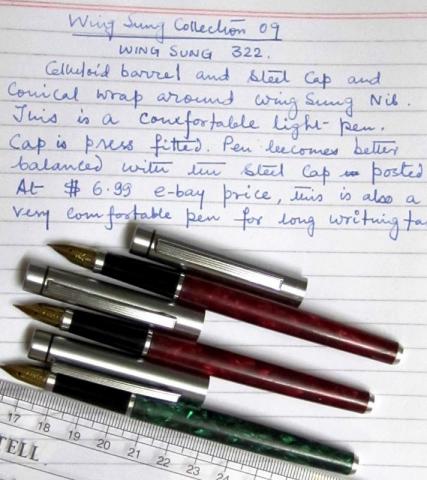 Wing Sung Collection 09
WING SUNG 322.
Celluloid barrel and Steel Cap and
Conical wrap around wing Sung Nib.
This is a comfortable light-pen.
Cap is press fitted. Pen becomes better
balanced with the Steel Cap posted
At $ 6.99 e-bay price, this is also a
very comfortable pen for long writing
17 18 19 20 21 22 23 24
TELL